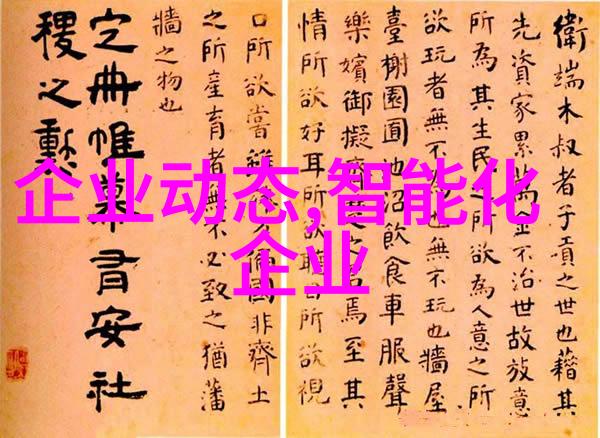 企业动态,智能化
企业
衛端木叔者子貢之世也藉其
先資家累萬金不治世故放意
所為其生民之所欲為人意之所
欲玩者無不也無不玩也牆屋
臺榭園囿池沼飲食車服聲
樂嬪御擬齊之焉至其
情所欲好耳所欲聽目所欲視
口所欲嘗雖國非齊土
之所產育者無不必致之猶藩
牆之物也
定冊帷幕有安社
稷之勳